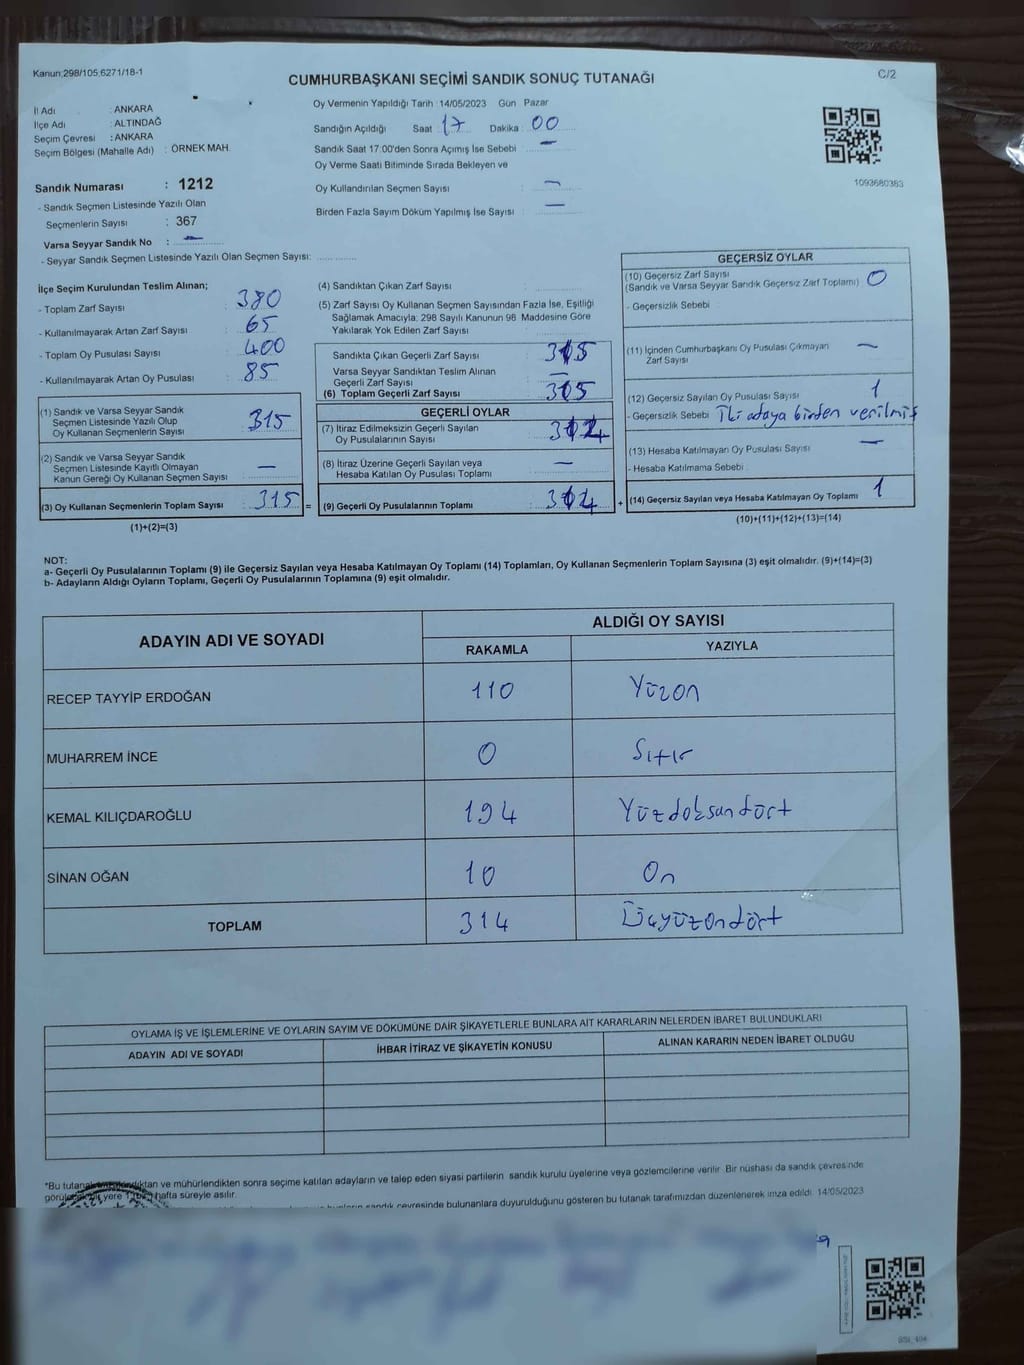 Kanun;298/105,6271/18-1
CUMHURBAŞKANI SEÇİMİ SANDIK SONUÇ TUTANAĞI
C/2
İl Adı : ANKARA
İlçe Adı : ALTINDAĞ
Seçim Çevresi : ANKARA
Seçim Bölgesi (Mahalle Adı) : ÖRNEK MAH.
Sandık Numarası : 1212
- Sandık Seçmen Listesinde Yazılı Olan
Seçmenlerin Sayısı : 367
Varsa Seyyar Sandık No : —
- Seyyar Sandık Seçmen Listesinde Yazılı Olan Seçmen Sayısı:
Oy Vermenin Yapıldığı Tarih : 14/05/2023 Gün Pazar
Sandığın Açıldığı Saat : 17 Dakika : 00
Sandık Saat 17:00'den Sonra Açımış İse Sebebi : —
Oy Verme Saati Bitiminde Sırada Bekleyen ve
Oy Kullandırılan Seçmen Sayısı : —
Birden Fazla Sayım Döküm Yapılmış İse Sayısı : —
1093680383
İlçe Seçim Kurulundan Teslim Alınan;
- Toplam Zarf Sayısı : 380
- Kullanılmayarak Artan Zarf Sayısı : 65
- Toplam Oy Pusulası Sayısı : 400
- Kullanılmayarak Artan Oy Pusulası : 85
(1) Sandık ve Varsa Seyyar Sandık
Seçmen Listesinde Yazılı Olup
Oy Kullanan Seçmenlerin Sayısı : 315
(2) Sandık ve Varsa Seyyar Sandık
Seçmen Listesinde Kayıtlı Olmayan
Kanun Gereği Oy Kullanan Seçmen Sayısı : —
(3) Oy Kullanan Seçmenlerin Toplam Sayısı : 315 =
(1)+(2)=(3)
(4) Sandıktan Çıkan Zarf Sayısı :
(5) Zarf Sayısı Oy Kullanan Seçmen Sayısından Fazla İse, Eşitliği
Sağlamak Amacıyla; 298 Sayılı Kanunun 98. Maddesine Göre
Yakılarak Yok Edilen Zarf Sayısı :
Sandıkta Çıkan Geçerli Zarf Sayısı : 315
Varsa Seyyar Sandıktan Teslim Alınan
Geçerli Zarf Sayısı : —
(6) Toplam Geçerli Zarf Sayısı : 315
GEÇERLİ OYLAR
(7) İtiraz Edilmeksizin Geçerli Sayılan
Oy Pusulalarının Sayısı : 314
(8) İtiraz Üzerine Geçerli Sayılan veya
Hesaba Katılan Oy Pusulası Toplamı : —
(9) Geçerli Oy Pusulalarının Toplamı : 314 +
GEÇERSİZ OYLAR
(10) Geçersiz Zarf Sayısı : 0
(Sandık ve Varsa Seyyar Sandık Geçersiz Zarf Toplamı)
- Geçersizlik Sebebi :
(11) İçinden Cumhurbaşkanı Oy Pusulası Çıkmayan
Zarf Sayısı : —
(12) Geçersiz Sayılan Oy Pusulası Sayısı : 1
- Geçersizlik Sebebi : İki adaya birden verilmiş
(13) Hesaba Katılmayan Oy Pusulası Sayısı : —
- Hesaba Katılmama Sebebi :
(14) Geçersiz Sayılan veya Hesaba Katılmayan Oy Toplamı : 1
(10)+(11)+(12)+(13)=(14)
NOT:
a- Geçerli Oy Pusulalarının Toplamı (9) ile Geçersiz Sayılan veya Hesaba Katılmayan Oy Toplamı (14) Toplamları, Oy Kullanan Seçmenlerin Toplam Sayısına (3) eşit olmalıdır. (9)+(14)=(3)
b- Adayların Aldığı Oyların Toplamı, Geçerli Oy Pusulalarının Toplamına (9) eşit olmalıdır.
ADAYIN ADI VE SOYADI ALDIĞI OY SAYISI
RAKAMLA YAZIYLA
RECEP TAYYİP ERDOĞAN 110 Yüzon
MUHARREM İNCE 0 Sıfır
KEMAL KILIÇDAROĞLU 194 Yüzdoksandört
SİNAN OĞAN 10 On
TOPLAM 314 Üçyüzondört
OYLAMA İŞ VE İŞLEMLERİNE VE OYLARIN SAYIM VE DÖKÜMÜNE DAİR ŞİKAYETLERLE BUNLARA AİT KARARLARIN NELERDEN İBARET BULUNDUKLARI
ADAYIN ADI VE SOYADI İHBAR İTİRAZ VE ŞİKAYETİN KONUSU ALINAN KARARIN NEDEN İBARET OLDUĞU
*Bu tutanak ve mühürlendikten sonra seçime katılan adayların ve talep eden siyasi partilerin sandık kurulu üyelerine veya gözlemcilerine verilir. Bir nüshası da sandık çevresinde
yere 1 hafta süreyle asılır.
sandık çevresinde bulunanlara duyurulduğunu gösteren bu tutanak tarafımızdan düzenlenerek imza edildi. 14/05/2023